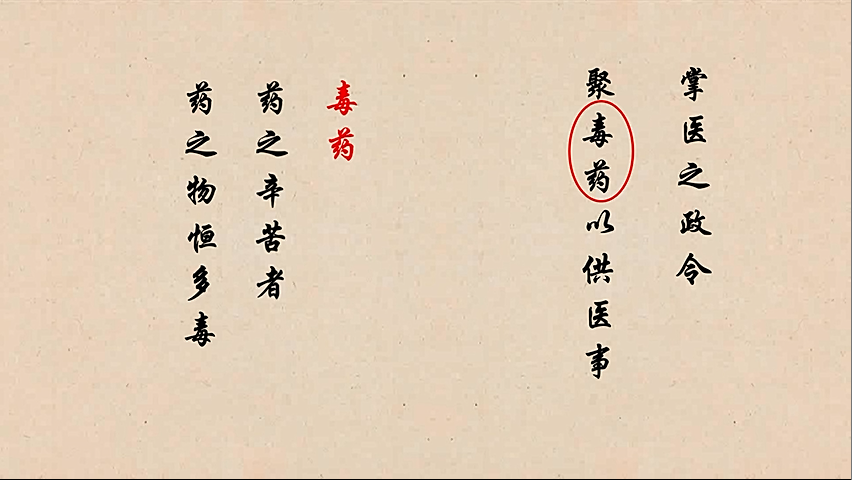 掌医之政令
聚毒药以供医事
毒药
药之辛苦者
药之物恒多毒